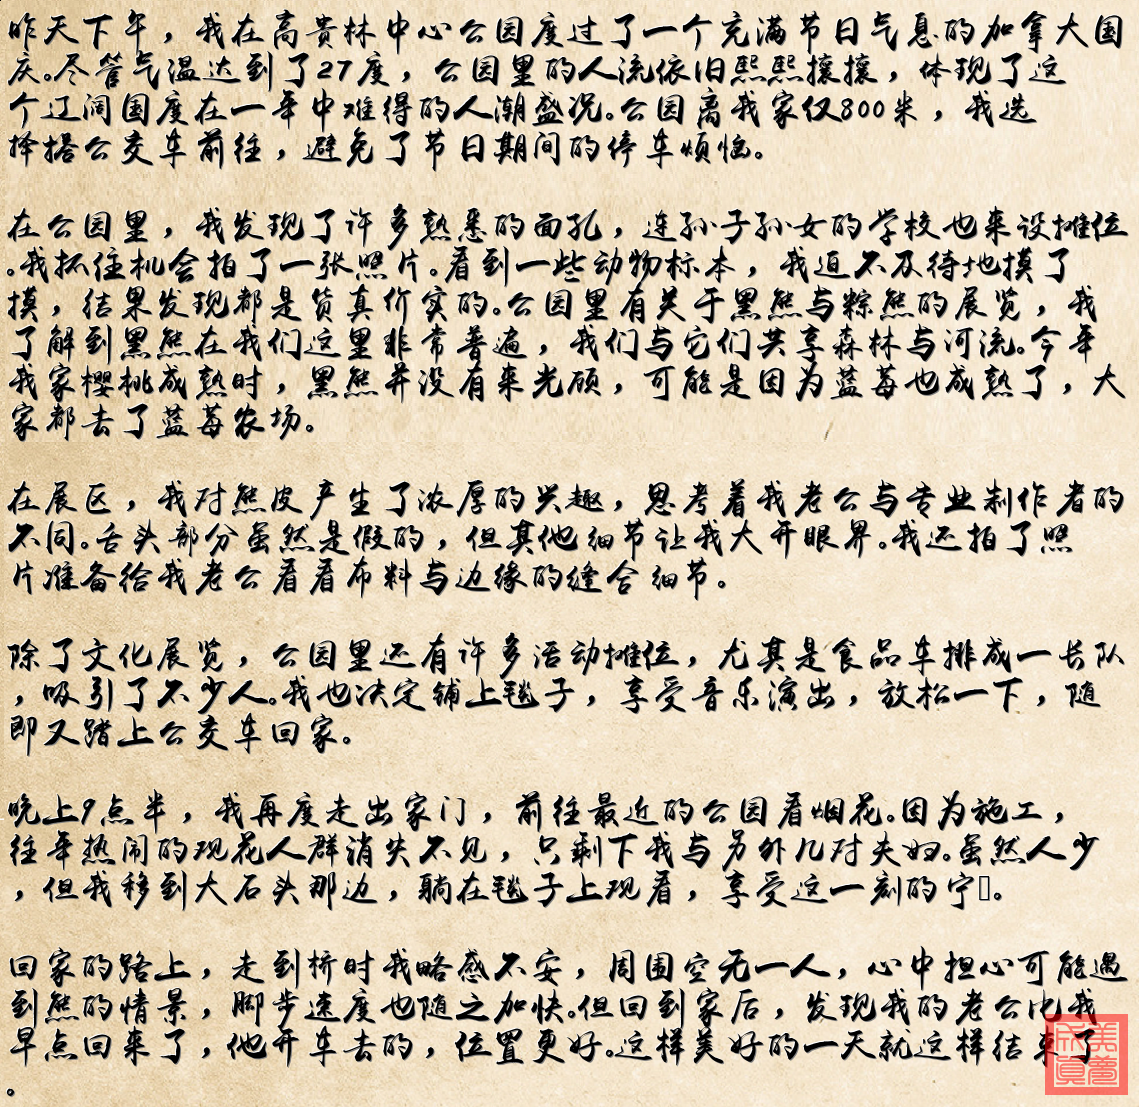 昨天下午，我在高贵林中心公园度过了一个充满节日气息的加拿大国
庆。尽管气温达到了27度，公园里的人流依旧熙熙攘攘，体现了这
个辽阔国度在一年中难得的人潮盛况。公园离我家仅800米，我选
择搭公交车前往，避免了节日期间的停车烦恼。
在公园里，我发现了许多熟悉的面孔，连孙子孙女的学校也来设摊位
。我抓住机会拍了一张照片。看到一些动物标本，我迫不及待地摸了
摸，结果发现都是货真价实的。公园里有关于黑熊与粽熊的展览，我
了解到黑熊在我们这里非常普遍，我们与它们共享森林与河流。今年
我家樱桃成熟时，黑熊并没有来光顾，可能是因为蓝莓也成熟了，大
家都去了蓝莓农场。
在展区，我对熊皮产生了浓厚的兴趣，思考着我老公与专业制作者的
不同。舌头部分虽然是假的，但其他细节让我大开眼界。我还拍了照
片准备给我老公看看布料与边缘的缝合细节。
除了文化展览，公园里还有许多活动摊位，尤其是食品车排成一长队
，吸引了不少人。我也决定铺上毯子，享受音乐演出，放松一下，随
即又踏上公交车回家。
晚上9点半，我再度走出家门，前往最近的公园看烟花。因为施工，
往年热闹的观花人群消失不见，只剩下我与另外几对夫妇。虽然人少
，但我移到大石头那边，躺在毯子上观看，享受这一刻的宁。
回家的路上，走到桥时我略感不安，周围空无一人，心中担心可能遇
到熊的情景，脚步速度也随之加快。但回到家后，发现我的老公比我
早点回来了，他开车去的，位置更好。这样美好的一天就这样结束了
。
美梦成真